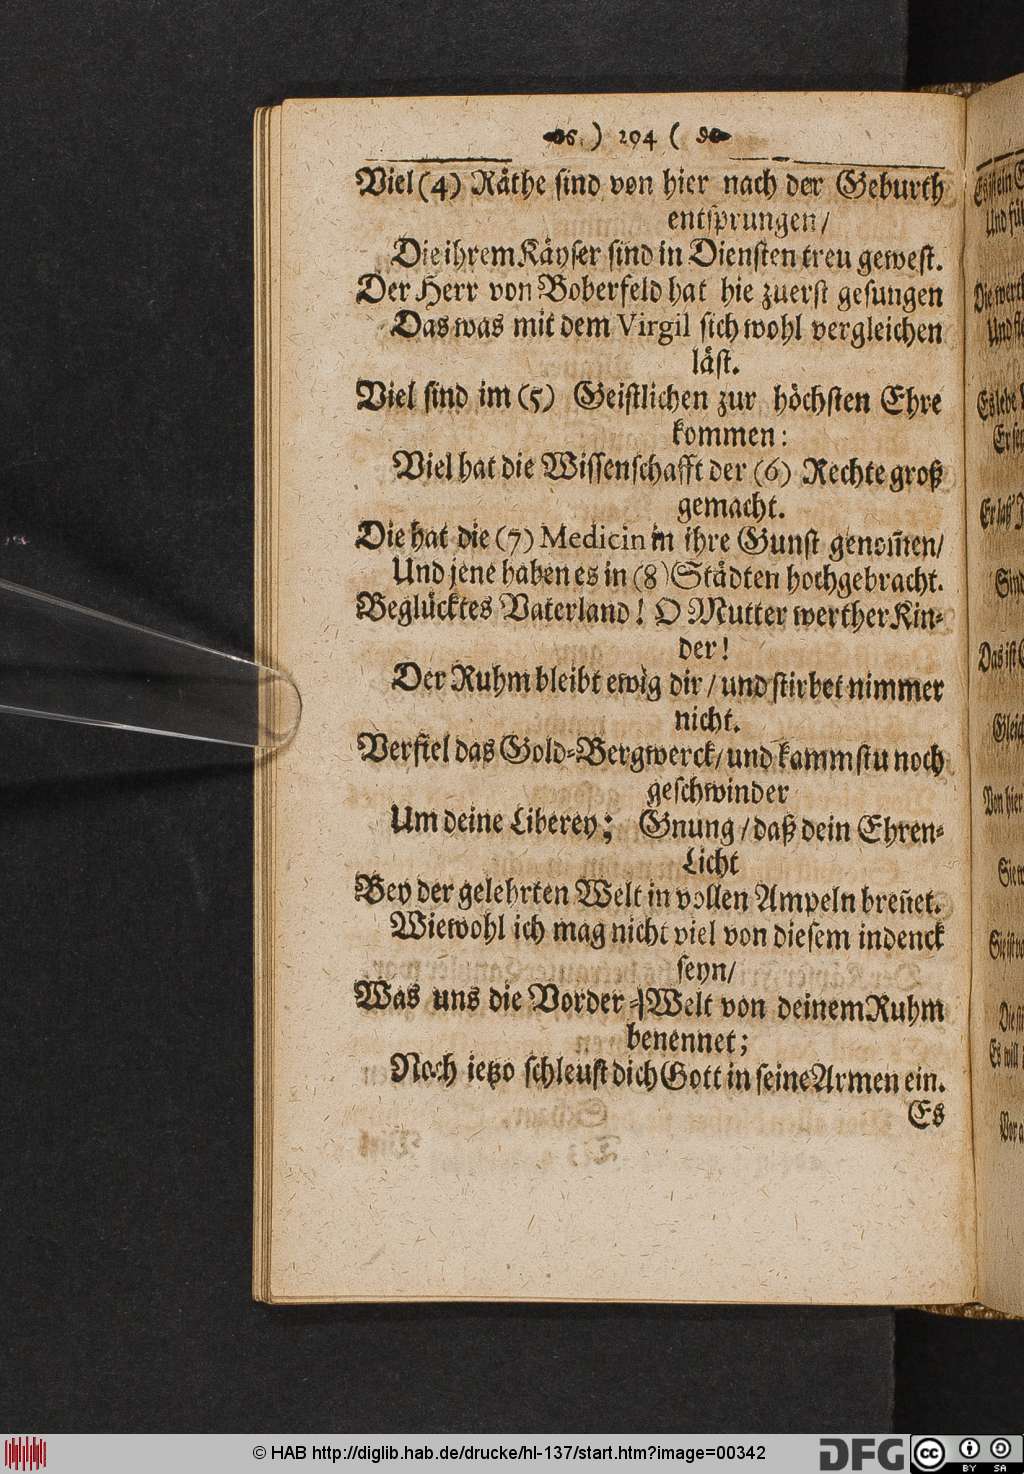 ) 294 (
Viel (4) Räthe sind von hier nach der Geburth
entsprungen/
Die ihrem Käyser sind in Diensten treu gewest.
Der Herr von Boberfeld hat hie zuerst gesungen
Das was mit dem Virgil sich wohl vergleichen
läst.
Viel sind im (5) Geistlichen zur höchsten Ehre
kommen:
Viel hat die Wissenschafft der (6) Rechte groß
gemacht.
Die hat die (7) Medicin in ihre Gunst genom̃en/
Und jene haben es in (8) Städten hochgebracht.
Beglücktes Vaterland! O Mutter werther Kin-
der!
Der Ruhm bleibt ewig dir/ und stirbet nimmer
nicht.
Verfiel das Gold-Bergwerck/ und kammstu noch
geschwinder
Um deine Liberey; Gnung/ daß dein Ehren-
Licht
Bey der gelehrten Welt in vollen Ampeln breñet.
Wiewohl ich mag nicht viel von diesem indenck
seyn/
Was uns die Vorder-Welt von deinem Ruhm
benennet;
Noch ietzo schleust dich Gott in seine Armen ein.
Es
© HAB http://diglib.hab.de/drucke/hl-137/start.htm?image=00342
DFG
cc BY SA